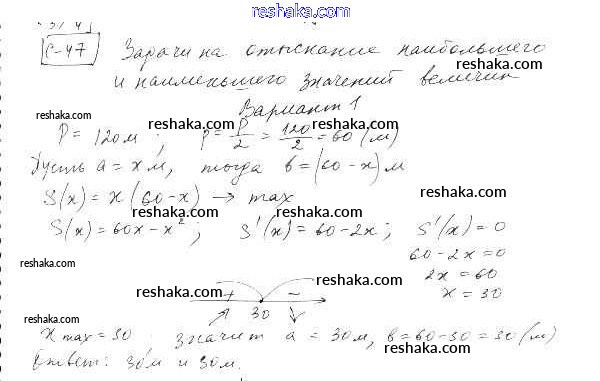 www.reshaka.com
С-47 Задачи на отыскание наибольшего
reshaka.com
и наименьшего значений величин
reshaka.com
Вариант 1
reshaka.com reshaka.com reshaka.com
P = 120 м ; p = P/2 = 120/2 = 60 (м)
Пусть a = x м, тогда b = (60 - x) м
reshaka.com
S(x) = x (60 - x) → max
reshaka.com reshaka.com
S(x) = 60x - x² ; S'(x) = 60 - 2x ; S'(x) = 0
60 - 2x = 0
reshaka.com
2x = 60
reshaka.com
x = 30
reshaka.com
+ −
30
reshaka.com
x max = 30 ; значит a = 30 м, b = 60 - 30 = 30 (м)
reshaka.com
Ответ: 30 м и 30 м.
reshaka.com